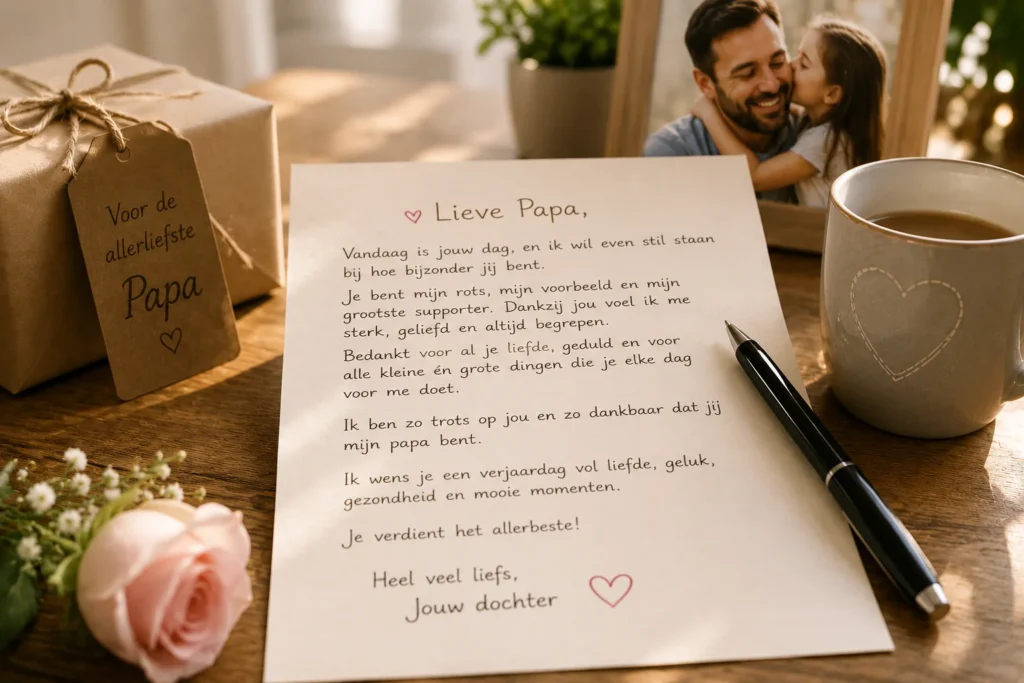 Voor de
allerliefste
Papa
Lieve Papa,
Vandaag is jouw dag, en ik wil even stil staan
bij hoe bijzonder jij bent.
Je bent mijn rots, mijn voorbeeld en mijn
grootste supporter. Dankzij jou voel ik me
sterk, geliefd en altijd begrepen.
Bedankt voor al je liefde, geduld en voor
alle kleine én grote dingen die je elke dag
voor me doet.
Ik ben zo trots op jou en zo dankbaar dat jij
mijn papa bent.
Ik wens je een verjaardag vol liefde, geluk,
gezondheid en mooie momenten.
Je verdient het allerbeste!
Heel veel liefs,
Jouw dochter